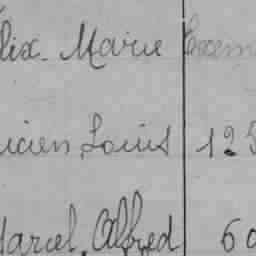 lix. Marie
ucien, Louis 125
Marcel, Alfred 60